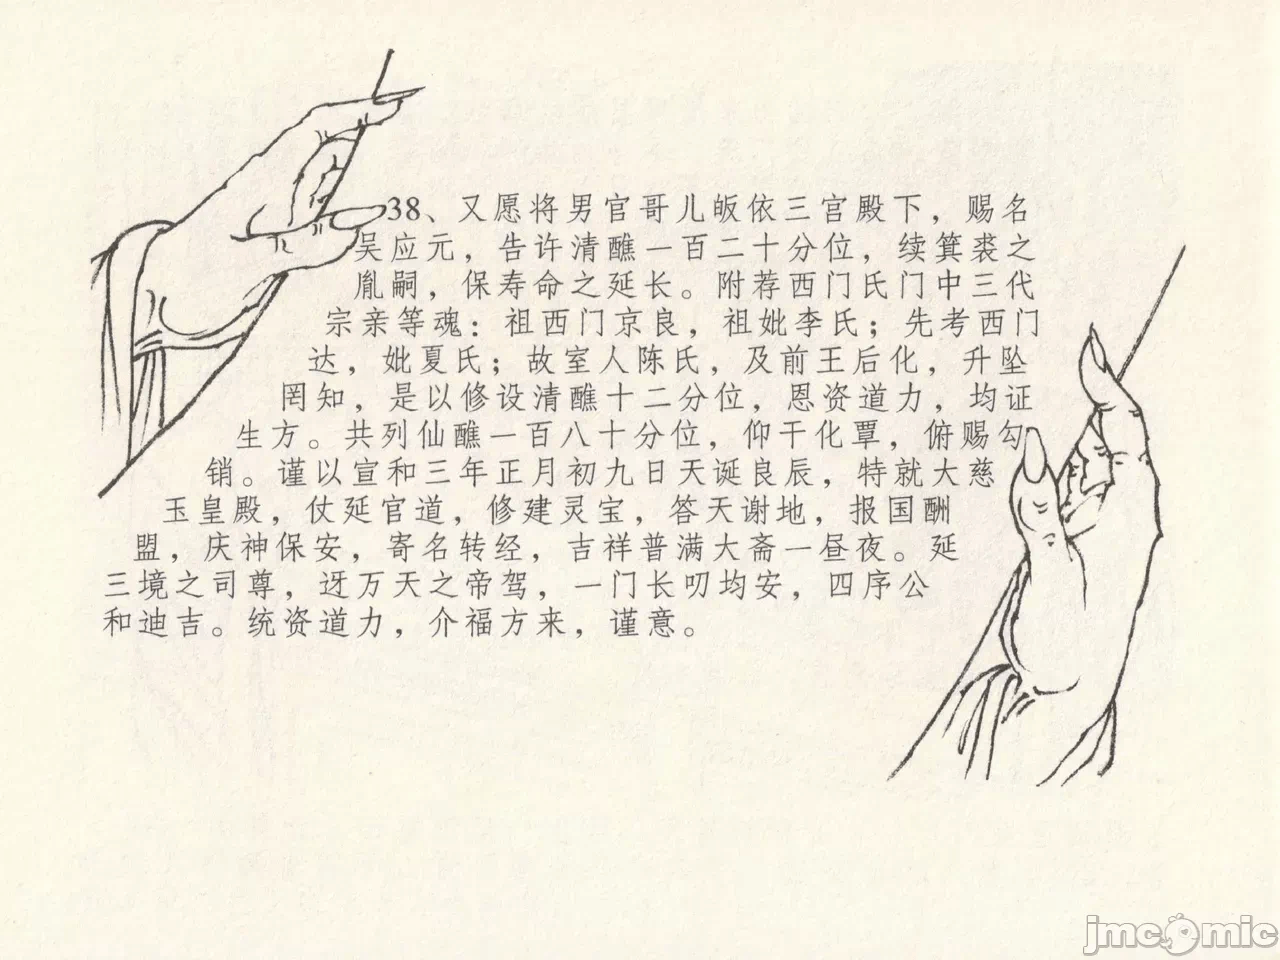 38、又愿将男官哥儿皈依三宫殿下，赐名
吴应元，告许清醮一百二十分位，续箕裘之
胤嗣，保寿命之延长。附荐西门氏门中三代
宗亲等魂：祖西门京良，祖妣李氏；先考西门
达，妣夏氏；故室人陈氏，及前王后化，升坠
罔知，是以修设清醮十二分位，恩资道力，均证
生方。共列仙醮一百八十分位，仰干化覃，俯赐勾
销。谨以宣和三年正月初九日天诞良辰，特就大慈
玉皇殿，仗延官道，修建灵宝，答天谢地，报国酬
盟，庆神保安，寄名转经，吉祥普满大斋一昼夜。延
三境之司尊，迓万天之帝驾，一门长叨均安，四序公
和迪吉。统资道力，介福方来，谨意。
jmcomic